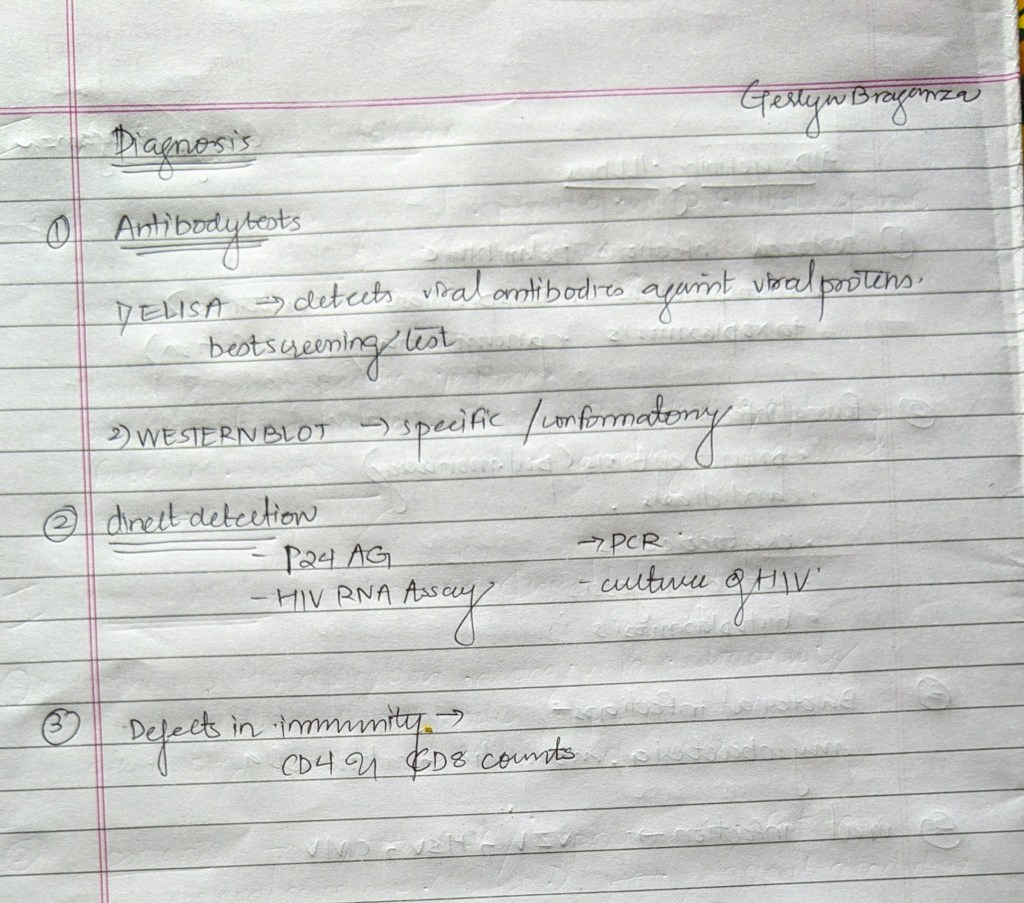 Gerlyn Braganza
Diagnosis
① Antibody tests
1) ELISA → detects viral antibodies against viral proteins.
best screening test
2) WESTERN BLOT → specific / conformatory
② direct detection
- P24 AG → PCR
- HIV RNA Assay - culture of HIV
③ Defects in immunity →
CD4 & CD8 counts